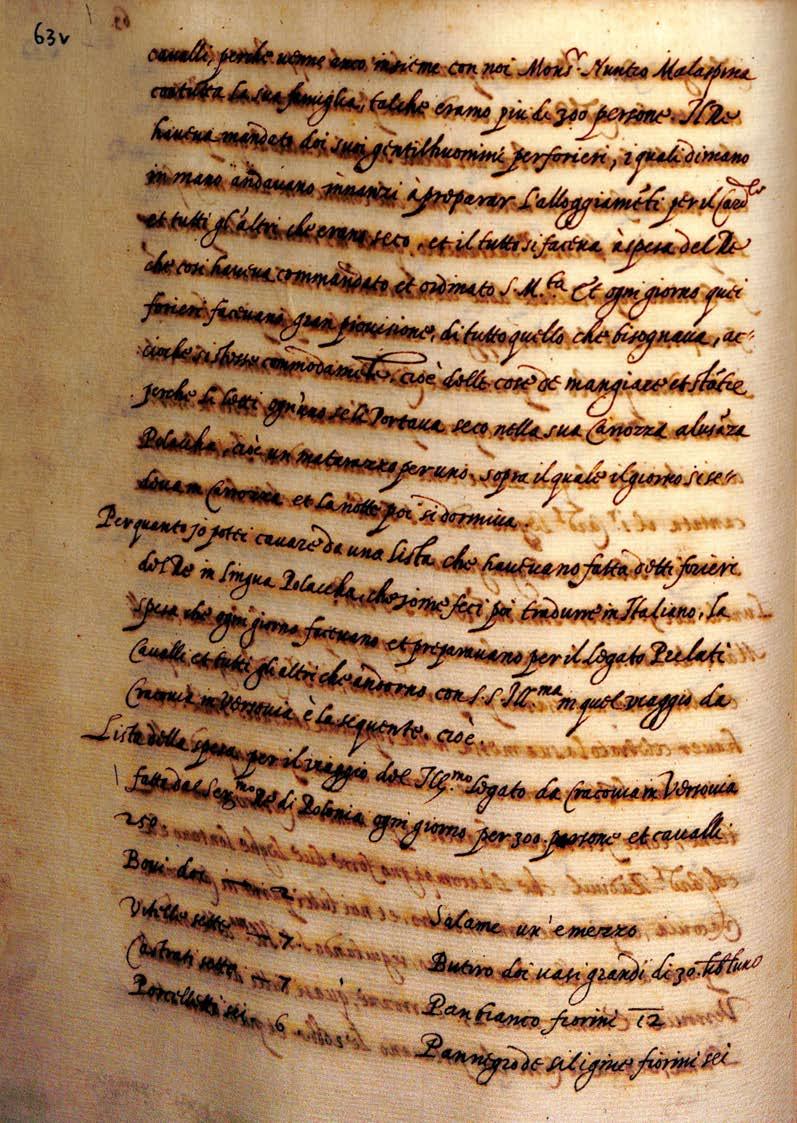 63v
cavalli, perche venne anco insieme con noi Mons.r Nuntio Malaspina
con tutta la sua famiglia, talche eramo piu di 300 persone. Il Re
haveva mandato doi suoi gentilhuomini per forieri, i quali di mano
in mano andavano innanzi à preparar l'alloggiamēti per il Card.le
et tutti gl'altri che erano seco, et il tutto si faceva à spesa del Re
che cosi haveva commandato et ordinato S. M.ta Et ogni giorno quei
forieri facevano gran provisione, di tutto quello che bisognava, ac-
cioche si stesse commodamēte, cioè delle cose de mangiare et stātie
perche li letti ogn'uno se li portava seco nella sua Carrozza al usāza
Polacha, cioè un matarazzo per uno, sopra il quale il giorno si se-
deva in Carrozza et la notte poi si dormiva.
Per quanto jo potti cavare da una lista che havevano fatta detti forieri
del Re in lingua Polaccha, che io me feci poi tradurre in Italiano, la
spesa che ogni giorno facevano et preparavano per il Legato Prelati
Cavalli et tutti gli altri che andorno con S. S. Ill.ma in quel viaggio da
Cracovia in Versovia è la sequente. cioè.
Lista della spesa per il viaggio del Ill.mo Legato da Cracovia in Versovia
fatta dal Ser.mo Re di Polonia ogni giorno per 300 persone et cavalli
250
Bovi doi 2
Vitelle sette 7.
Castrati sette 7
Porcelletti sei 6
Salame un' e mezzo
Butiro doi vasi grandi di 30. l'uno
Pan bianco fiorini 12
Pan negro de siligine fiorini sei